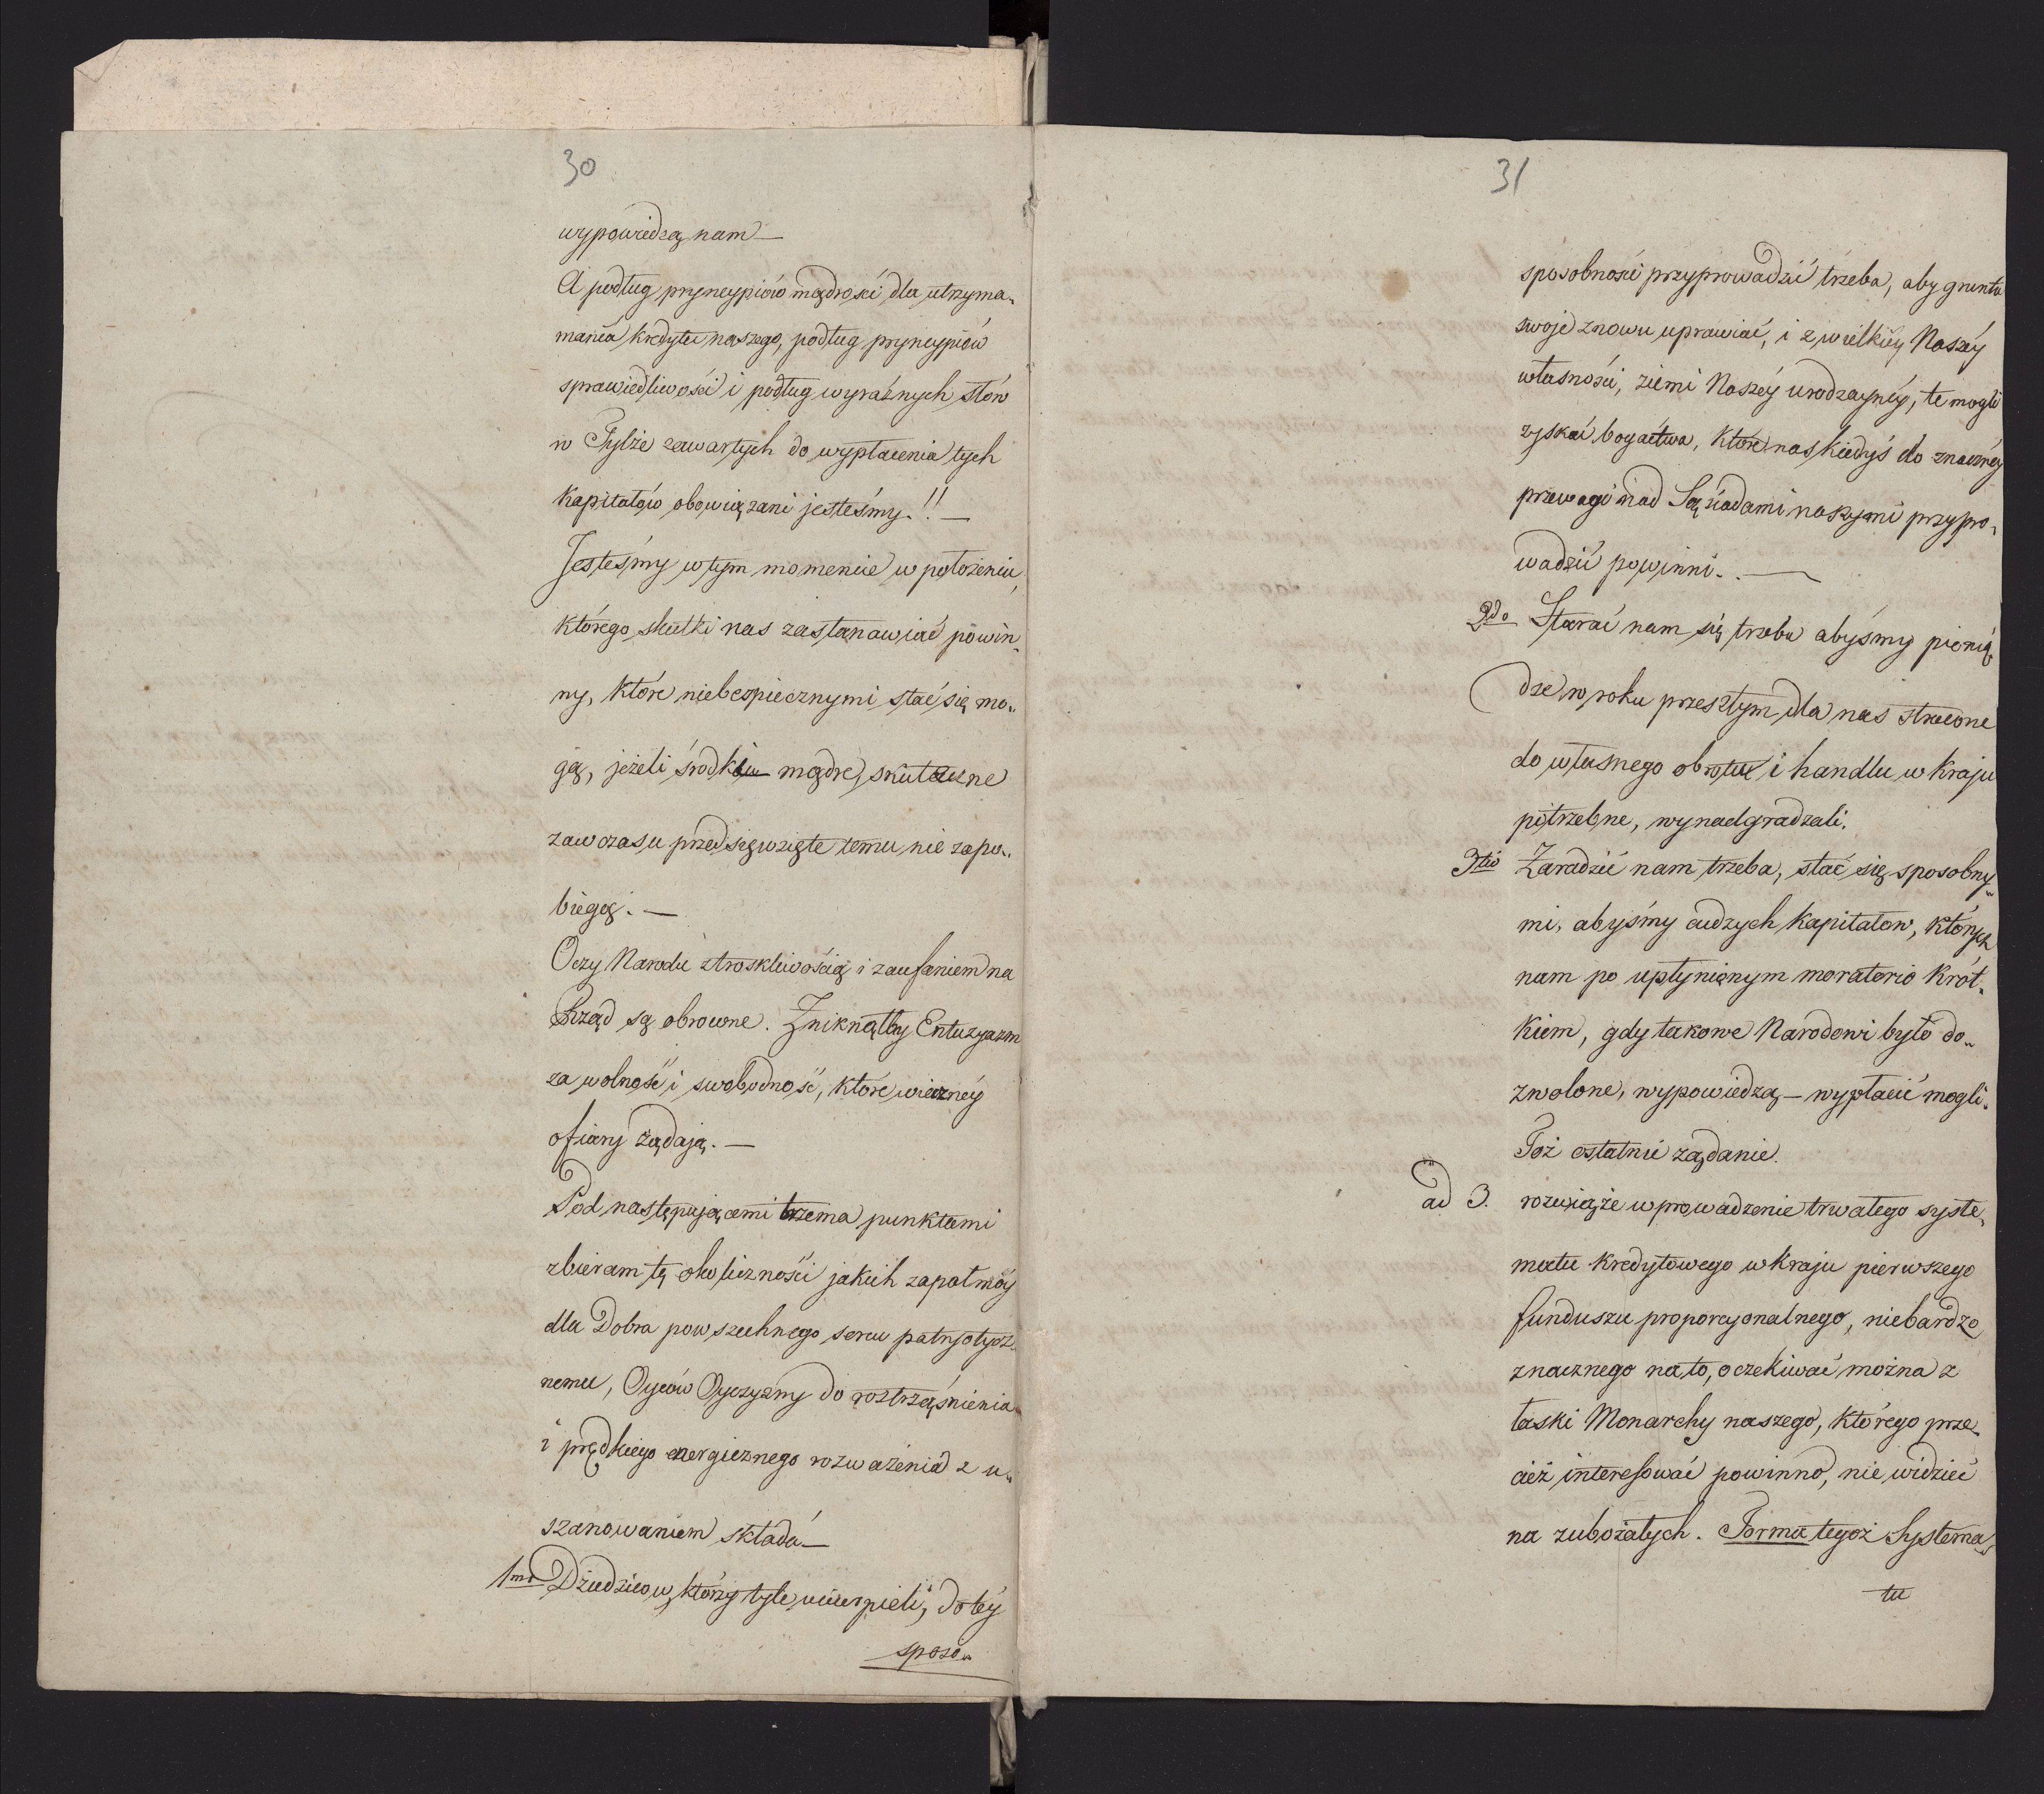 30
wypowiedzą nam —
A podług pryncypiów mądrości dla utrzyma„
mania kredytu naszego, podług pryncypiów
sprawiedliwości i podług wyraźnych słów
w Tylże zawartych do wypłacenia tych
Kapitałów obowiązani jesteśmy.!! —
Jesteśmy w tym momencie w położeniu,
którego skutki nas zastanawiać powin„
ny, które niebespiecznymi stać się mo„
gą, jeżeli środki mądre, skuteczne
zawczasu przedsięwzięte temu nie zapo„
biegą. —
Oczy Narodu z troskliwością i zaufaniem na
Rząd są obrowne. Zniknąłby Entuzyazm
za wolność i swobodność, które wieczney
ofiary żądają. —
Pod następującemi trzema punktami
zbieram tę okoliczności jakich zapał móy
dla Dobra powszechnego sercu patryotycz„
nemu, Oyców Oyczyzny do roztrząśnienia
i prędkiego energicznego rozważenia z u„
szanowaniem składa —
1mo Dziedziców, którzy tyle ucierpieli, do téy
sposo„
31
sposobności przyprowadzić trzeba, aby grunta
swoje znowu uprawiać, i z wielkiéy Naszéy
własności, ziemi Naszéy urodzaynéy, te mogli
zyskać bogactwa, które nas kiedyś do znacznéy
przewagi nad Sąsiadami naszymi przypro„
wadzić powinni. —
2do Starać nam się trzeba abyśmy pienią„
dze w roku przeszłym dla nas stracone
do własnego obrotu i handlu w kraju
potrzebne, wynadgradzali.
3tio Zaradzić nam trzeba, stać się sposobny„
mi, abyśmy cudzych kapitałow, których
nam po upłynionym moratorio krót„
kiem, gdy takowe Narodowi było do„
zwolone, wypowiedzą — wypłacić mogli.
Toż ostatnie żądanie.
ad 3. rozwiąże wprowadzenie trwałego syste„
matu kredytowego w kraju pierwszego
funduszu proporcyonalnego, niebardzo
znacznego na to, oczekiwać można z
łaski Monarchy naszego, którego prze„
cież interesować powinno, nie widzieć
na zubożałych. Forma tegoż Systema„
tu